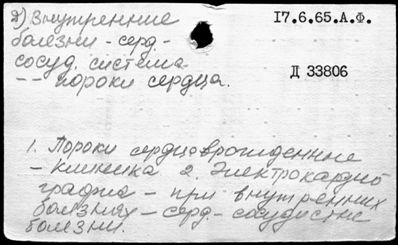 2) Внутренние
болезни - серд.-
сосуд. система
-- пороки сердца.
17.6.65.А.Ф.
Д 33806
1. Пороки сердца врожденные
- клиника 2. Электрокардио
графия - при внутренних
болезнях - серд.- сосудистые
болезни.